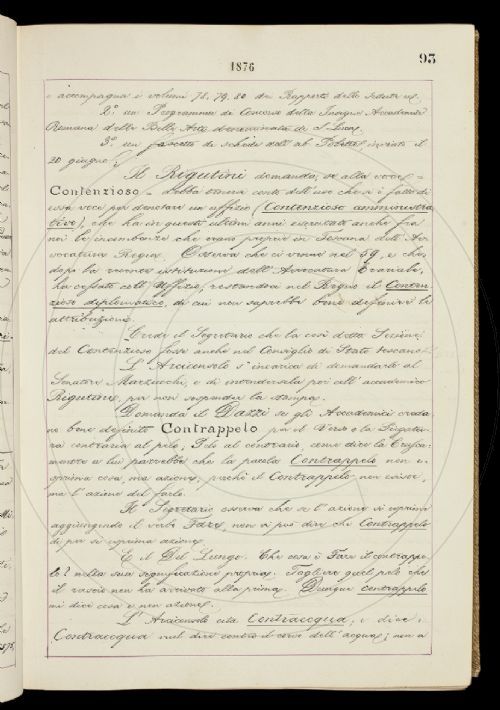 1876
93
e accompagna i volumi 78, 79, 80 dei Rapporti delle sedute
2.° un Programma di Concorso della Insigne Accademia
Romana delle Belle Arti denominata di S. Luca.
3.° un fascetto di schede dell'ab. inviato il
20 giugno;
Il Rigutini domanda, se alla voce =
Contenzioso = debba tenersi conto dell'uso che si è fatto di
essa voce per denotare un uffizio (Contenzioso amministra
tivo), che ha in questi ultimi anni esercitate anche fra
noi le incombenze che erano proprie in Toscana dell'Av
vocatura Regia. Osserva che ci venne nel 59, e che
dopo la recente istituzione dell'Avvocatura Erariale,
ha cessato cotest'Uffizio, restandovi nel Regno il Conten
zioso diplomatico, di cui non saprebbe bene definire le
attribuzioni.
Crede il Segretario che la così detta Sezione
del Contenzioso fosse anche nel Consiglio di Stato toscano.
L'Arciconsolo s'incarica di domandarlo al
Senatore Marzucchi, e di intendersela poi coll'accademico
Rigutini, per non sospender la stampa.
Domanda il Dazzi se gli Accademici creda
no bene definito Contrappelo per il Verso o la Piegatu
ra contraria al pelo, Pelo al contrario, come dice la Crusca:
mentre a lui parrebbe che la parola Contrappelo non e
sprima cosa, ma azione, perchè il Contrappelo non esiste,
ma l'azione del farlo.
Il Segretario osserva che se l'azione si esprime
aggiungendo il verbo Fare, non si può dire che Contrappelo
di per sè esprima azione.
E il Del Lungo. Che cosa è Fare il contrappe
lo? nella sua significazione propria. Tagliare quel pelo che
il rasoio non ha arrivato alla prima. Dunque contrappelo
mi dice cosa e non azione.
L'Arciconsolo cita Contracqua, e dice:
Contracqua vuol dire contro il corso dell'acqua; non è